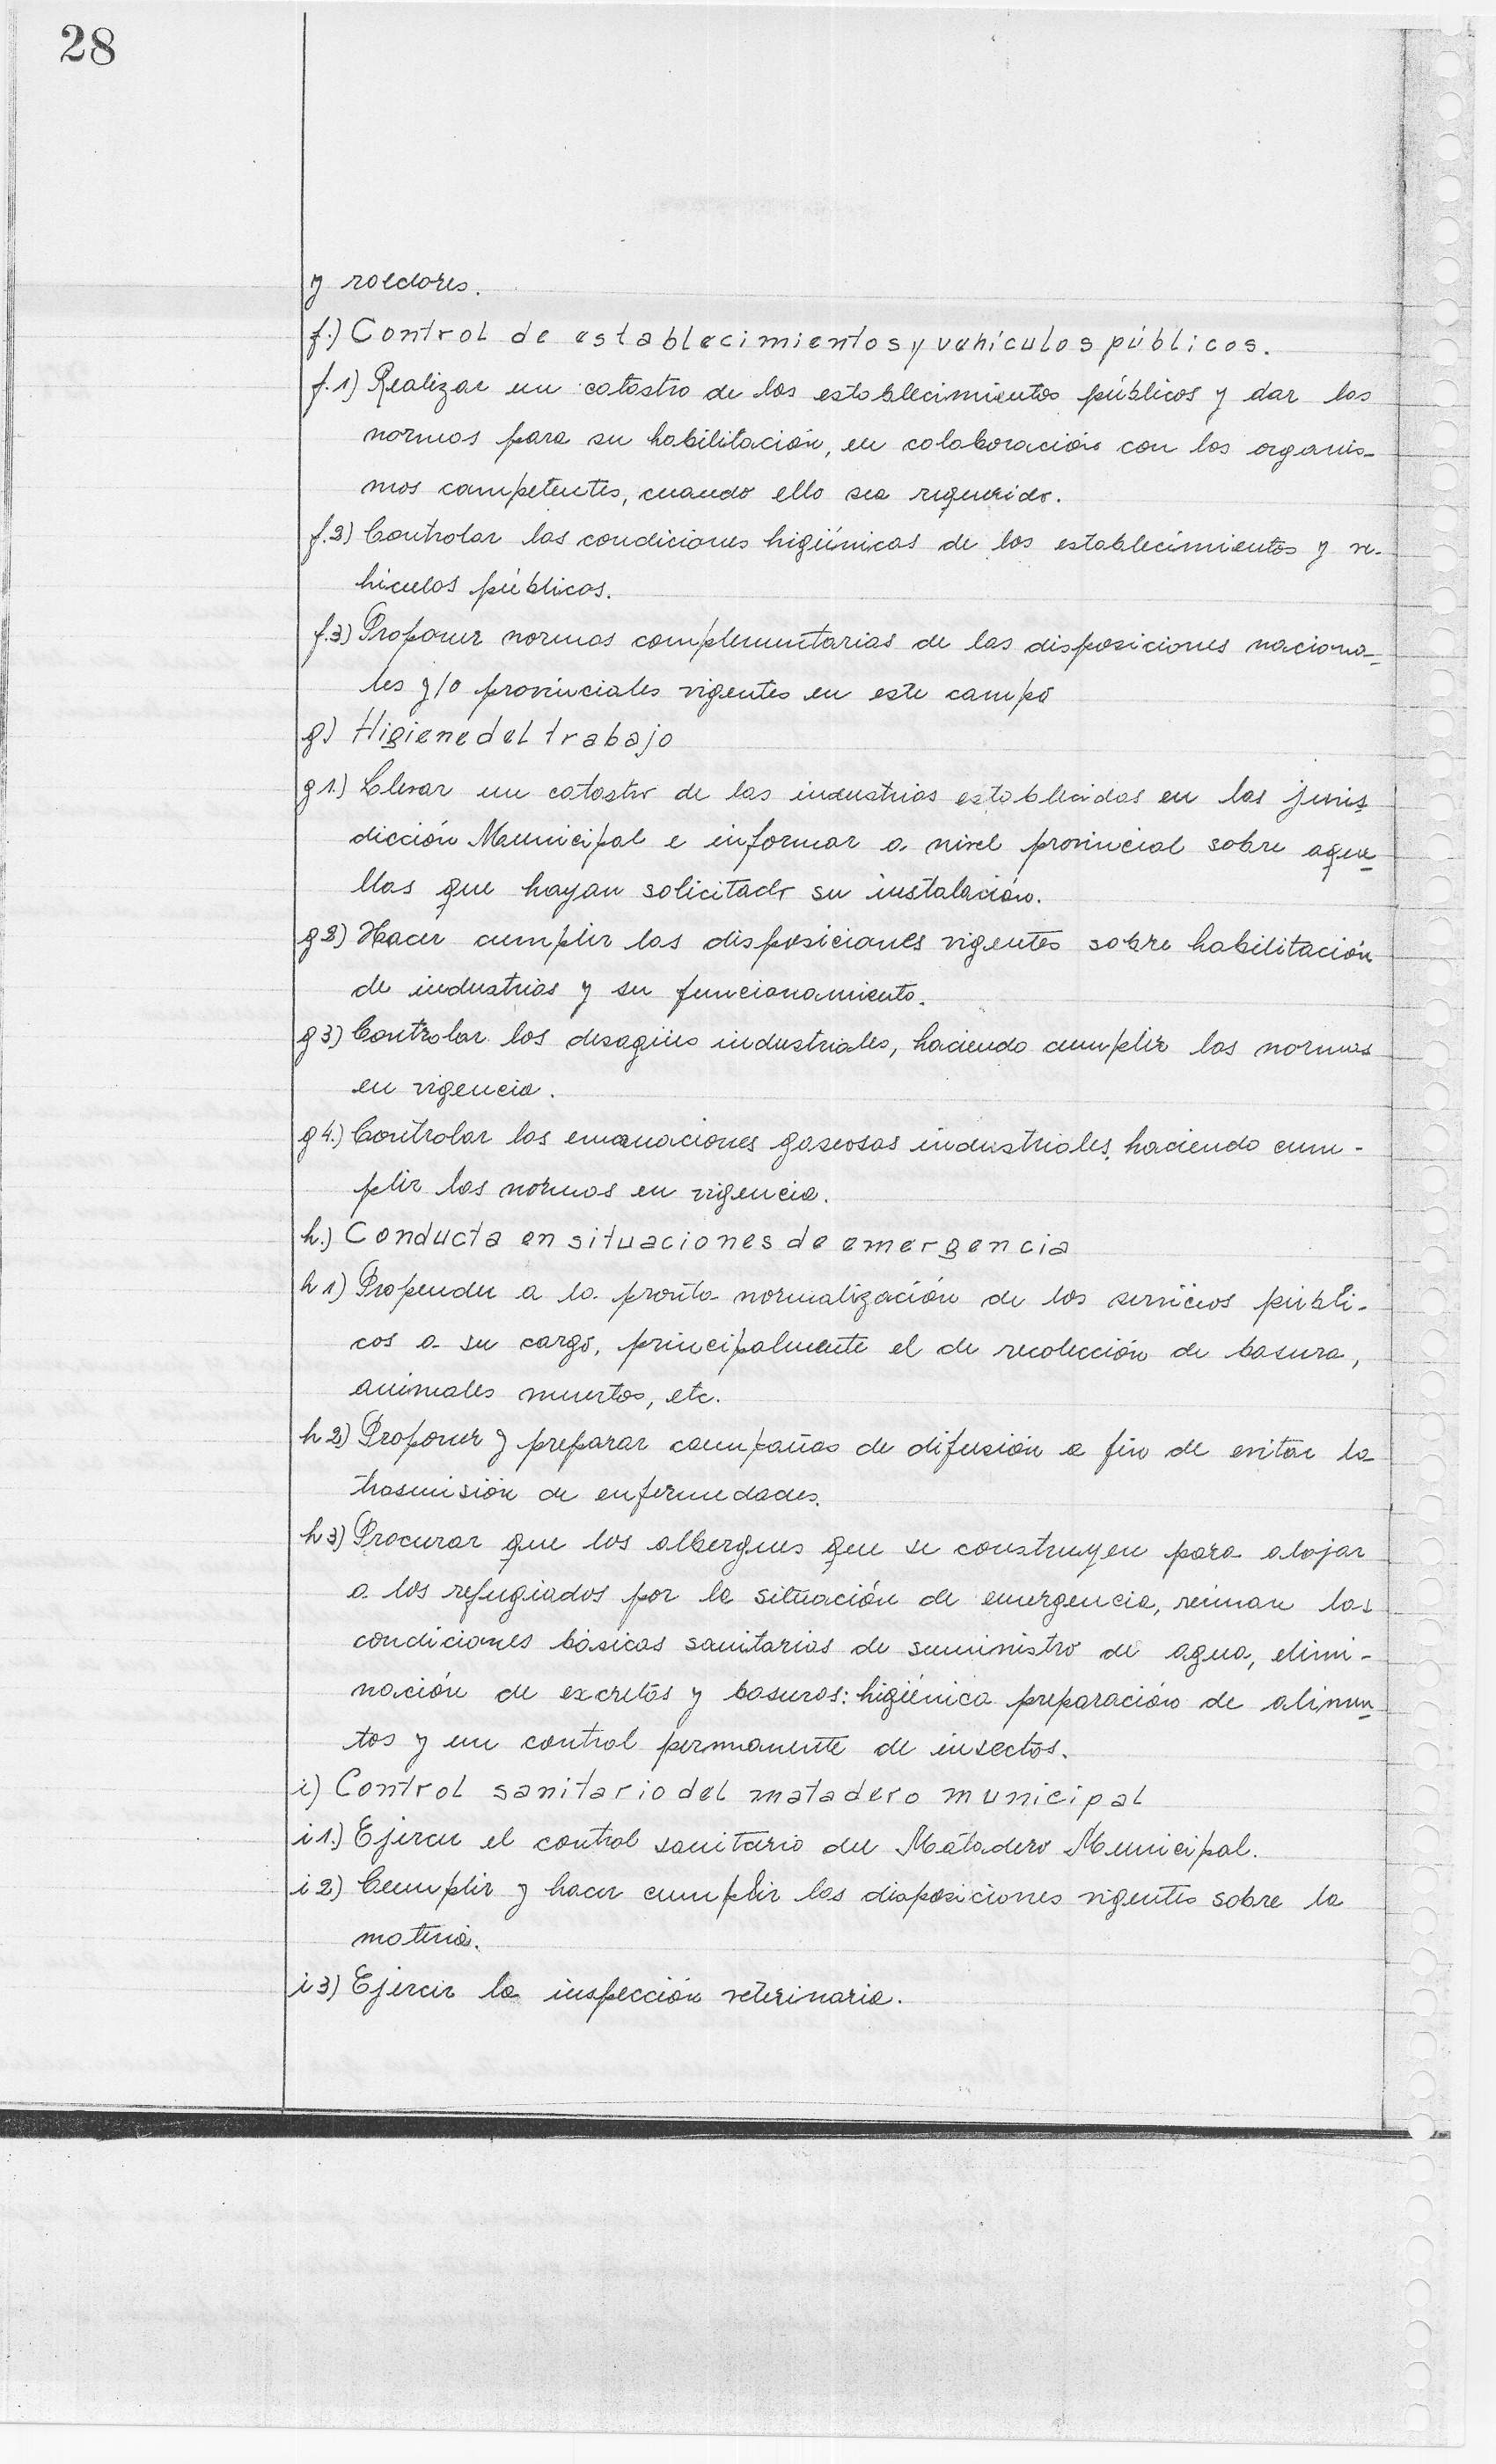 28
y roedores.
f.) Control de establecimientos y vehículos públicos.
f.1) Realizar un catastro de los establecimientos públicos y dar las
normas para su habilitación, en colaboración con los organis-
mos competentes, cuando ello sea requerido.
f.2) Controlar las condiciones higiénicas de los establecimientos y ve-
hículos públicos.
f.3) Proponer normas complementarias de las disposiciones naciona-
les y/o provinciales vigentes en este campo
g) Higiene del trabajo
g1.) Llevar un catastro de las industrias establecidas en las juris-
dicción Municipal e informar a nivel provincial sobre aque-
llas que hayan solicitado su instalación.
g2) Hacer cumplir las disposiciones vigentes sobre habilitación
de industrias y su funcionamiento.
g3) Controlar los desagües industriales, haciendo cumplir las normas
en vigencia.
g4.) Controlar las emanaciones gaseosas industriales, haciendo cum-
plir las normas en vigencia.
h.) Conducta en situaciones de emergencia
h1) Propender a la pronta normalización de los servicios públi-
cos a su cargo, principalmente el de recolección de basura,
animales muertos, etc.
h2) Proponer y preparar campañas de difusión a fin de evitar la
trasmisión de enfermedades.
h3) Procurar que los albergues que se construyen para alojar
a los refugiados por la situación de emergencia, reúnan las
condiciones básicas sanitarias de suministro de agua, elimi-
nación de excretas y basuras: higiénica preparación de alimen-
tos y un control permanente de insectos.
i) Control sanitario del matadero municipal
i1.) Ejercer el control sanitario del Matadero Municipal.
i2) Cumplir y hacer cumplir las disposiciones vigentes sobre la
materia.
i3) Ejercer la inspección veterinaria.